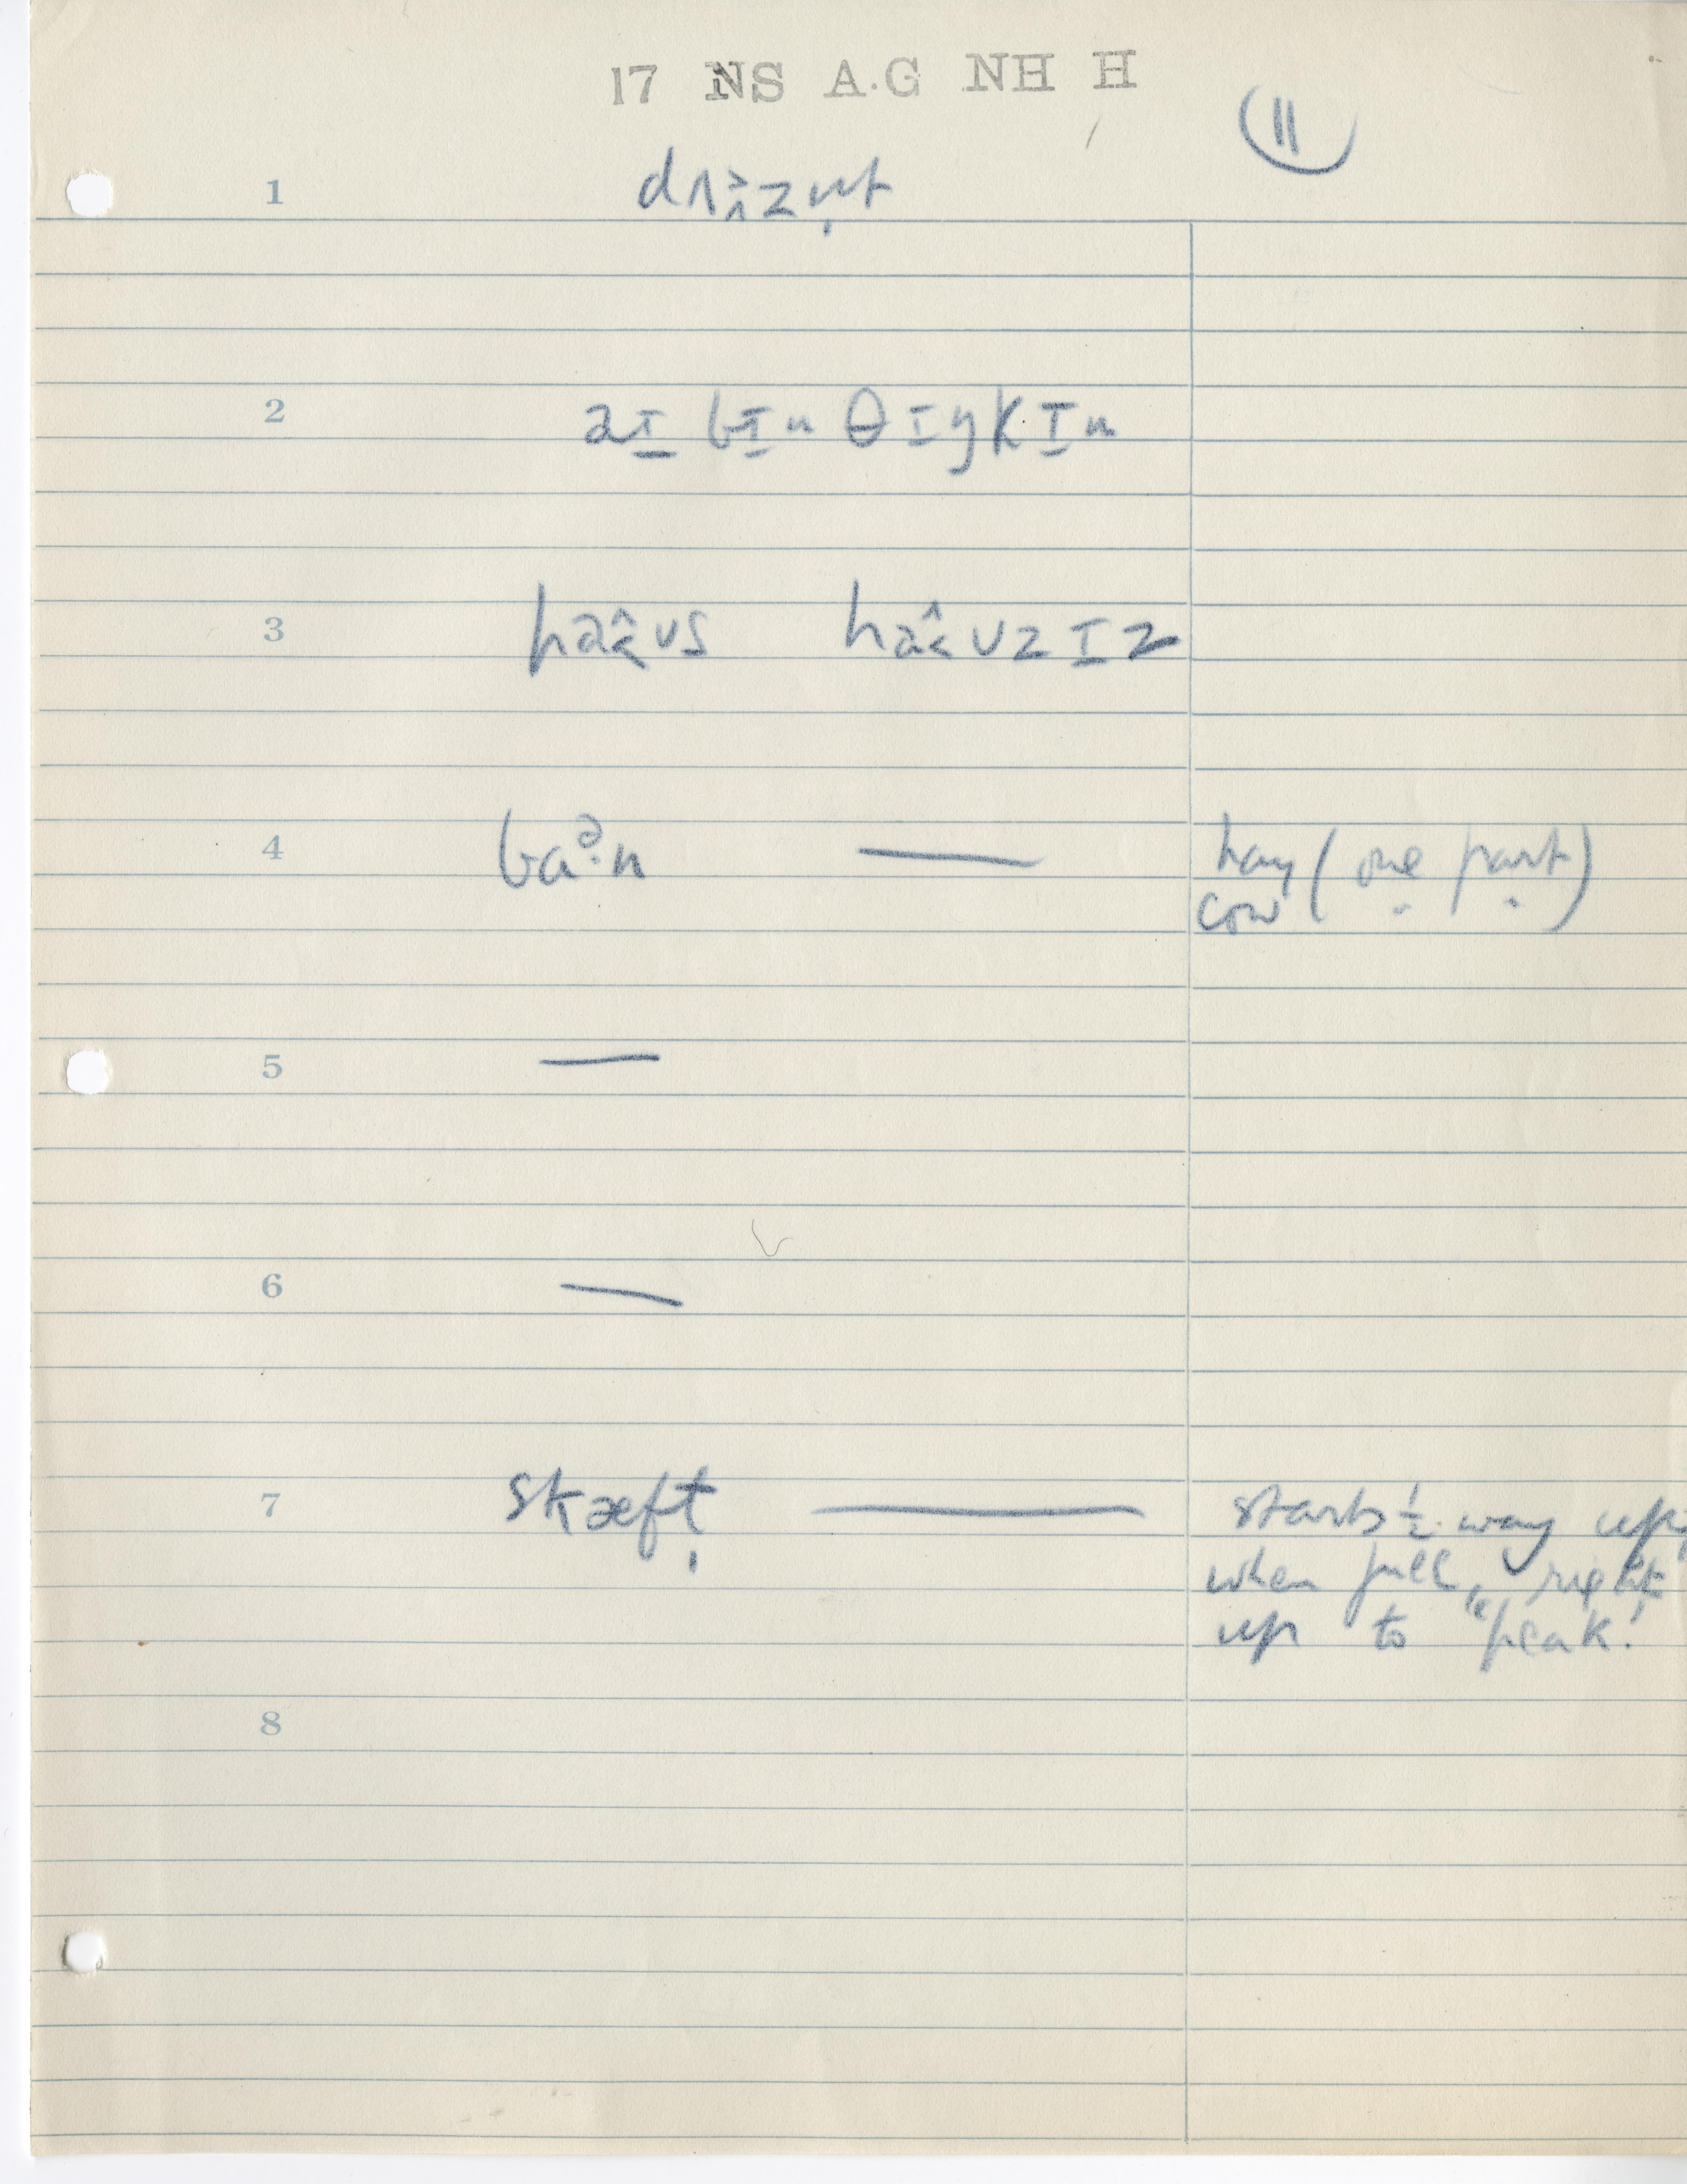 17 NS A.G NH H
11
1 dʌ˃̬zn̩t
2 aɪ bɪn θɪŋkɪn
3 haʊs haʊzɪz
4 baᵊ·n — hay (one part)
cow
5 —
6 —
7 skæft — starts ½ way up,
when full, right
up to "peak."
8